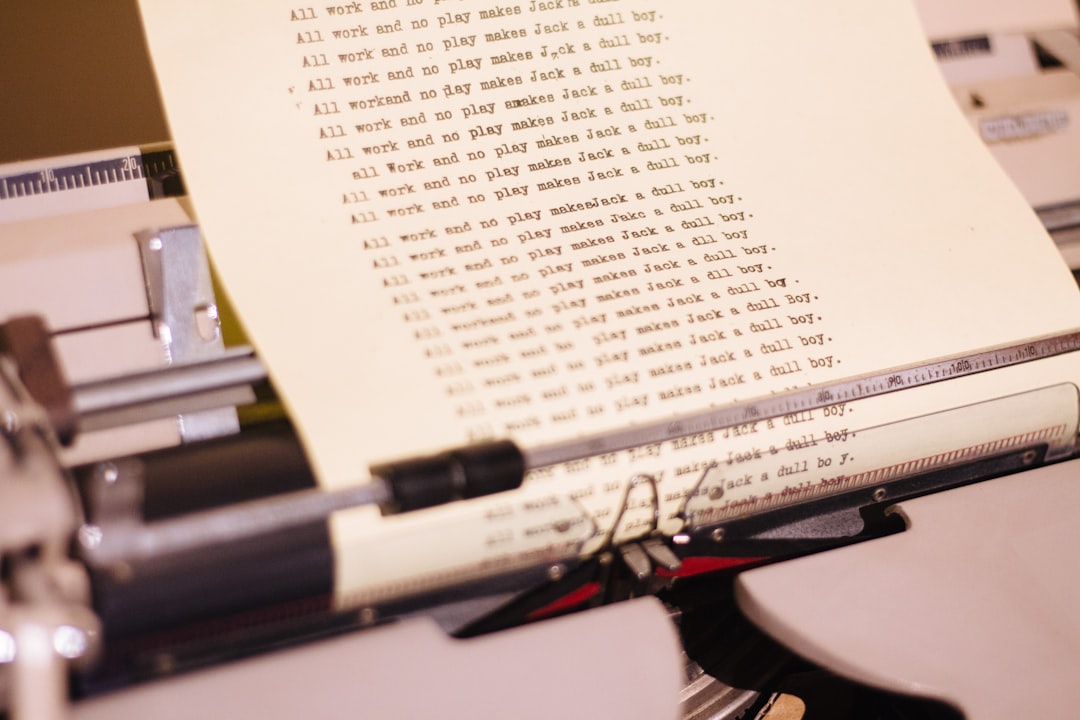 All work and no play makes Jack a dull
All work and no play makes Jack a dull boy.
All work and no play makes Jack a dull boy.
All work and no play makes J,ck a dull boy.
All workand no play makes Jack a dull boy.
All work and no play amakes Jack a dull boy.
All work and no play makes Jack a dull boy.
all Work and no play makes Jack a dull boy.
All work and no play makes Jack a dull boy.
All work and no play makes Jack a dull boy.
All work and no play makesJack a dull boy.
All work and no play makes Jakc a dull boy.
All work and no play makes Jack a dull boy.
All work and no play makes Jack a dll boy
All work and no play makes Jack a dull boy.
All workand no play makes Jack a dll boy.
All work and no play makes Jack a dull boy.
All work and no play makes Jack a dull Boy.
All work and no play makes Jack a dull boy.
All work and no play makes Jack a dull boy.
All work and no play
and no play makes Jack a dull boy.
All work and no play makes Jack a dull boy.
All work and no play Jack a dull bo y.
a dull boy.
10 20
90 100 110